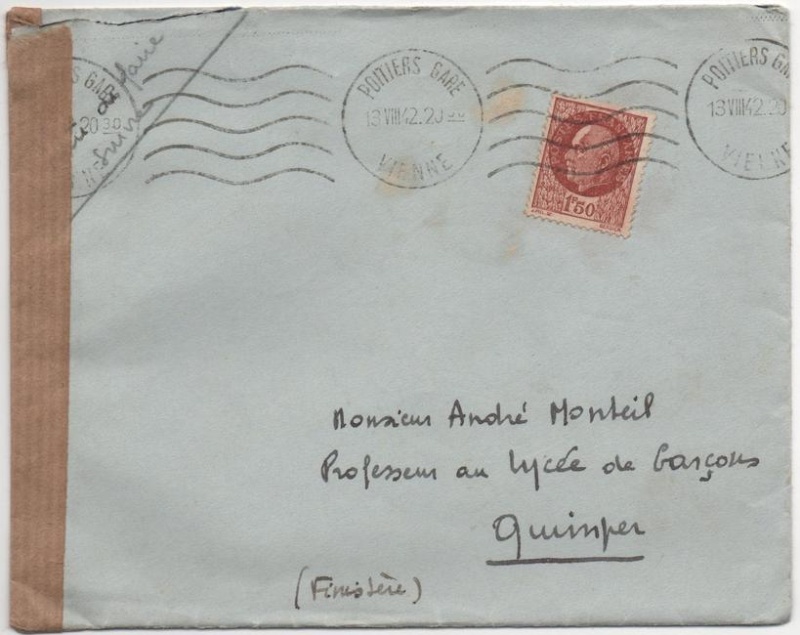 POITIERS GARE
13 VIII 42.20
VIENNE
POITIERS GARE
13 VIII 42.20
VIENNE
1F50
Monsieur André Monteil
Professeur au lycée de Garçons
Quimper
(Finistère)